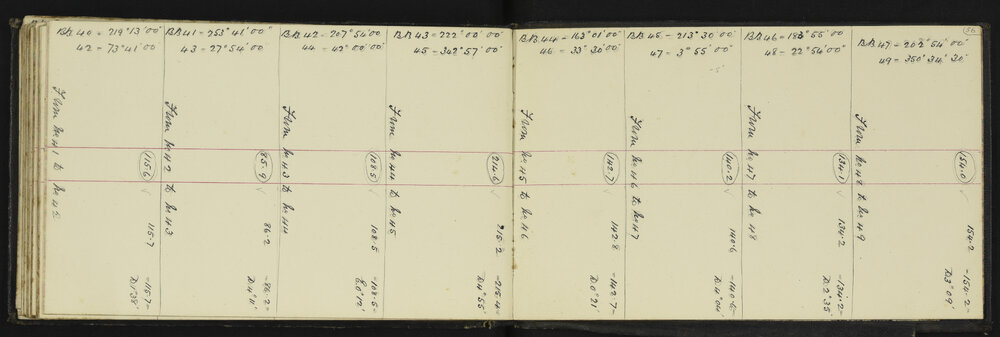 BB 40 = 219° 13' 00"
42 = 73° 41' 00
From pe 41 to pe 42
115.6
115.7
-115.7-
D.1°38'
BB 41 = 253° 41' 00"
43 = 27° 54' 00
From pe 42 to pe 43
85.9
86.2
-86.2-
D.4°11'
BB 42 - 207° 54' 00
44 = 42° 00' 00
From pe 43 to pe 44
108.5
108.5
-108.5-
E0°12'
BB 43 = 222° 00' 00
45 - 342° 57' 00"
From pe 44 to pe 45
214.6
215.2
-215.4-
D.4°55'
BB 44 - 163° 01' 00"
46 = 33° 30' 00
From pe 45 to pe 46
142.7
142.8
-142.7-
D.0°21'
BB 45 - 213° 30' 00
47 = 3° 55' 00
From pe 46 to pe 47
140.2
140.6
-140.6-
D.4°04'
BB 46 = 183° 55' 00
48 = 22° 54' 00"
From pe 47 to pe 48
134.1
134.2
-134.2-
D.2°35'
56
BB 47 = 202° 54' 00"
49 = 350° 34' 30"
From pe 48 to pe 49
154.0
154.2
-154.2-
D.3°09'